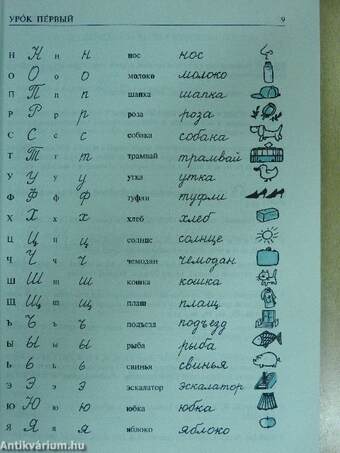 УРО́К ПЕ́РВЫЙ 9
Н Н н н нос нос
О О о о молоко молоко
П П п п шапка шапка
Р Р р р роза роза
С С с с собака собака
Т Т т т трамвай трамвай
У У у у утка утка
Ф Ф ф ф туфли туфли
Х Х х х хлеб хлеб
Ц Ц ц ц солнце солнце
Ч Ч ч ч чемодан чемодан
Ш Ш ш ш кошка кошка
Щ Щ щ щ плащ плащ
Ъ Ъ ъ ъ подъезд подъезд
Ы Ы ы ы рыба рыба
Ь Ь ь ь свинья свинья
Э Э э э эскалатор эскалатор
Ю Ю ю ю юбка юбка
Я Я я я яблоко яблоко
Antikvárium.hu
antikvarium.hu